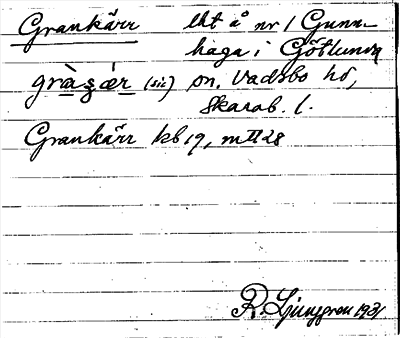 Grankärr lht å nr 1 Gunn-
haga i Götlunda
gràşǽr (sic) sn, Vadsbo hd,
Skarab. l.
Grankärr kb 19, m II 28
R. Ljunggren 1931